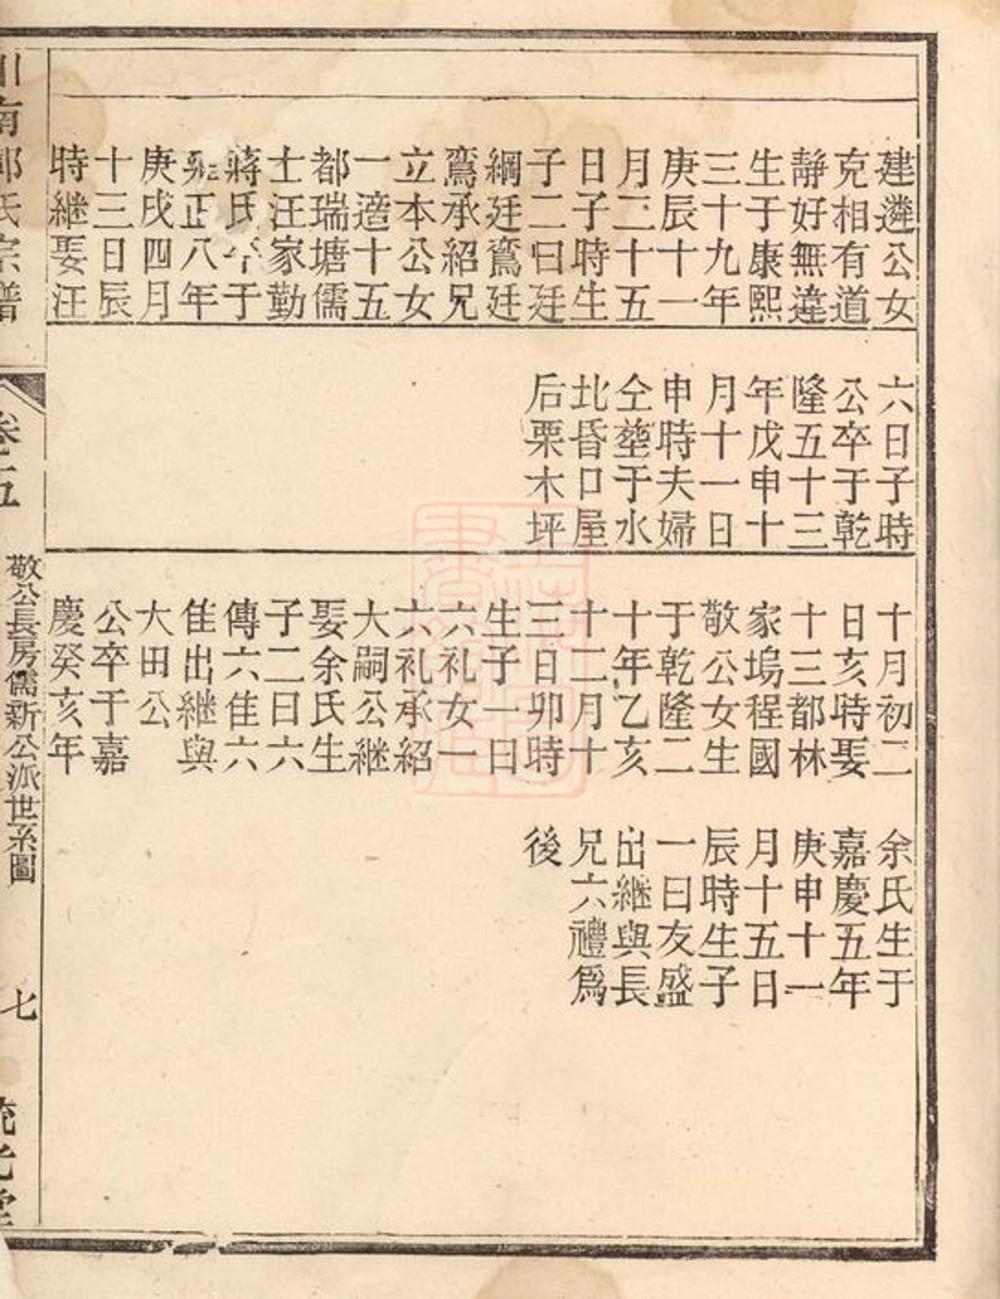 建遴公女
克相有道
靜好無違
生于康熙
三十九年
庚辰十一
月二十五
日子時生
子二曰廷
綱廷鸞廷
鸞承紹兄
立本公女
一適十五
都瑞塘儒
士汪家勤
蔣氏卒于
雍正八年
庚戌四月
十三日辰
時継娶汪
六日子時
公卒于乾
隆五十三
年戊申十
月十一日
申時夫婦
仝塟于水
北昏口屋
后栗木坪
十月初二
日亥時娶
十三都林
家塢程國
敬公女生
于乾隆二
十年乙亥
十二月十
三日卯時
生子一曰
六礼女一
六礼承紹
大嗣公継
娶余氏生
子二曰六
傳六隹六
隹出継與
大田公
公卒于嘉
慶癸亥年
余氏生于
嘉慶五年
庚申十一
月十五日
辰時生子
一曰友盛
出継與長
兄六禮爲
後
川南郭氏宗譜
卷之五
敬公長房儒新公派世系圖
七